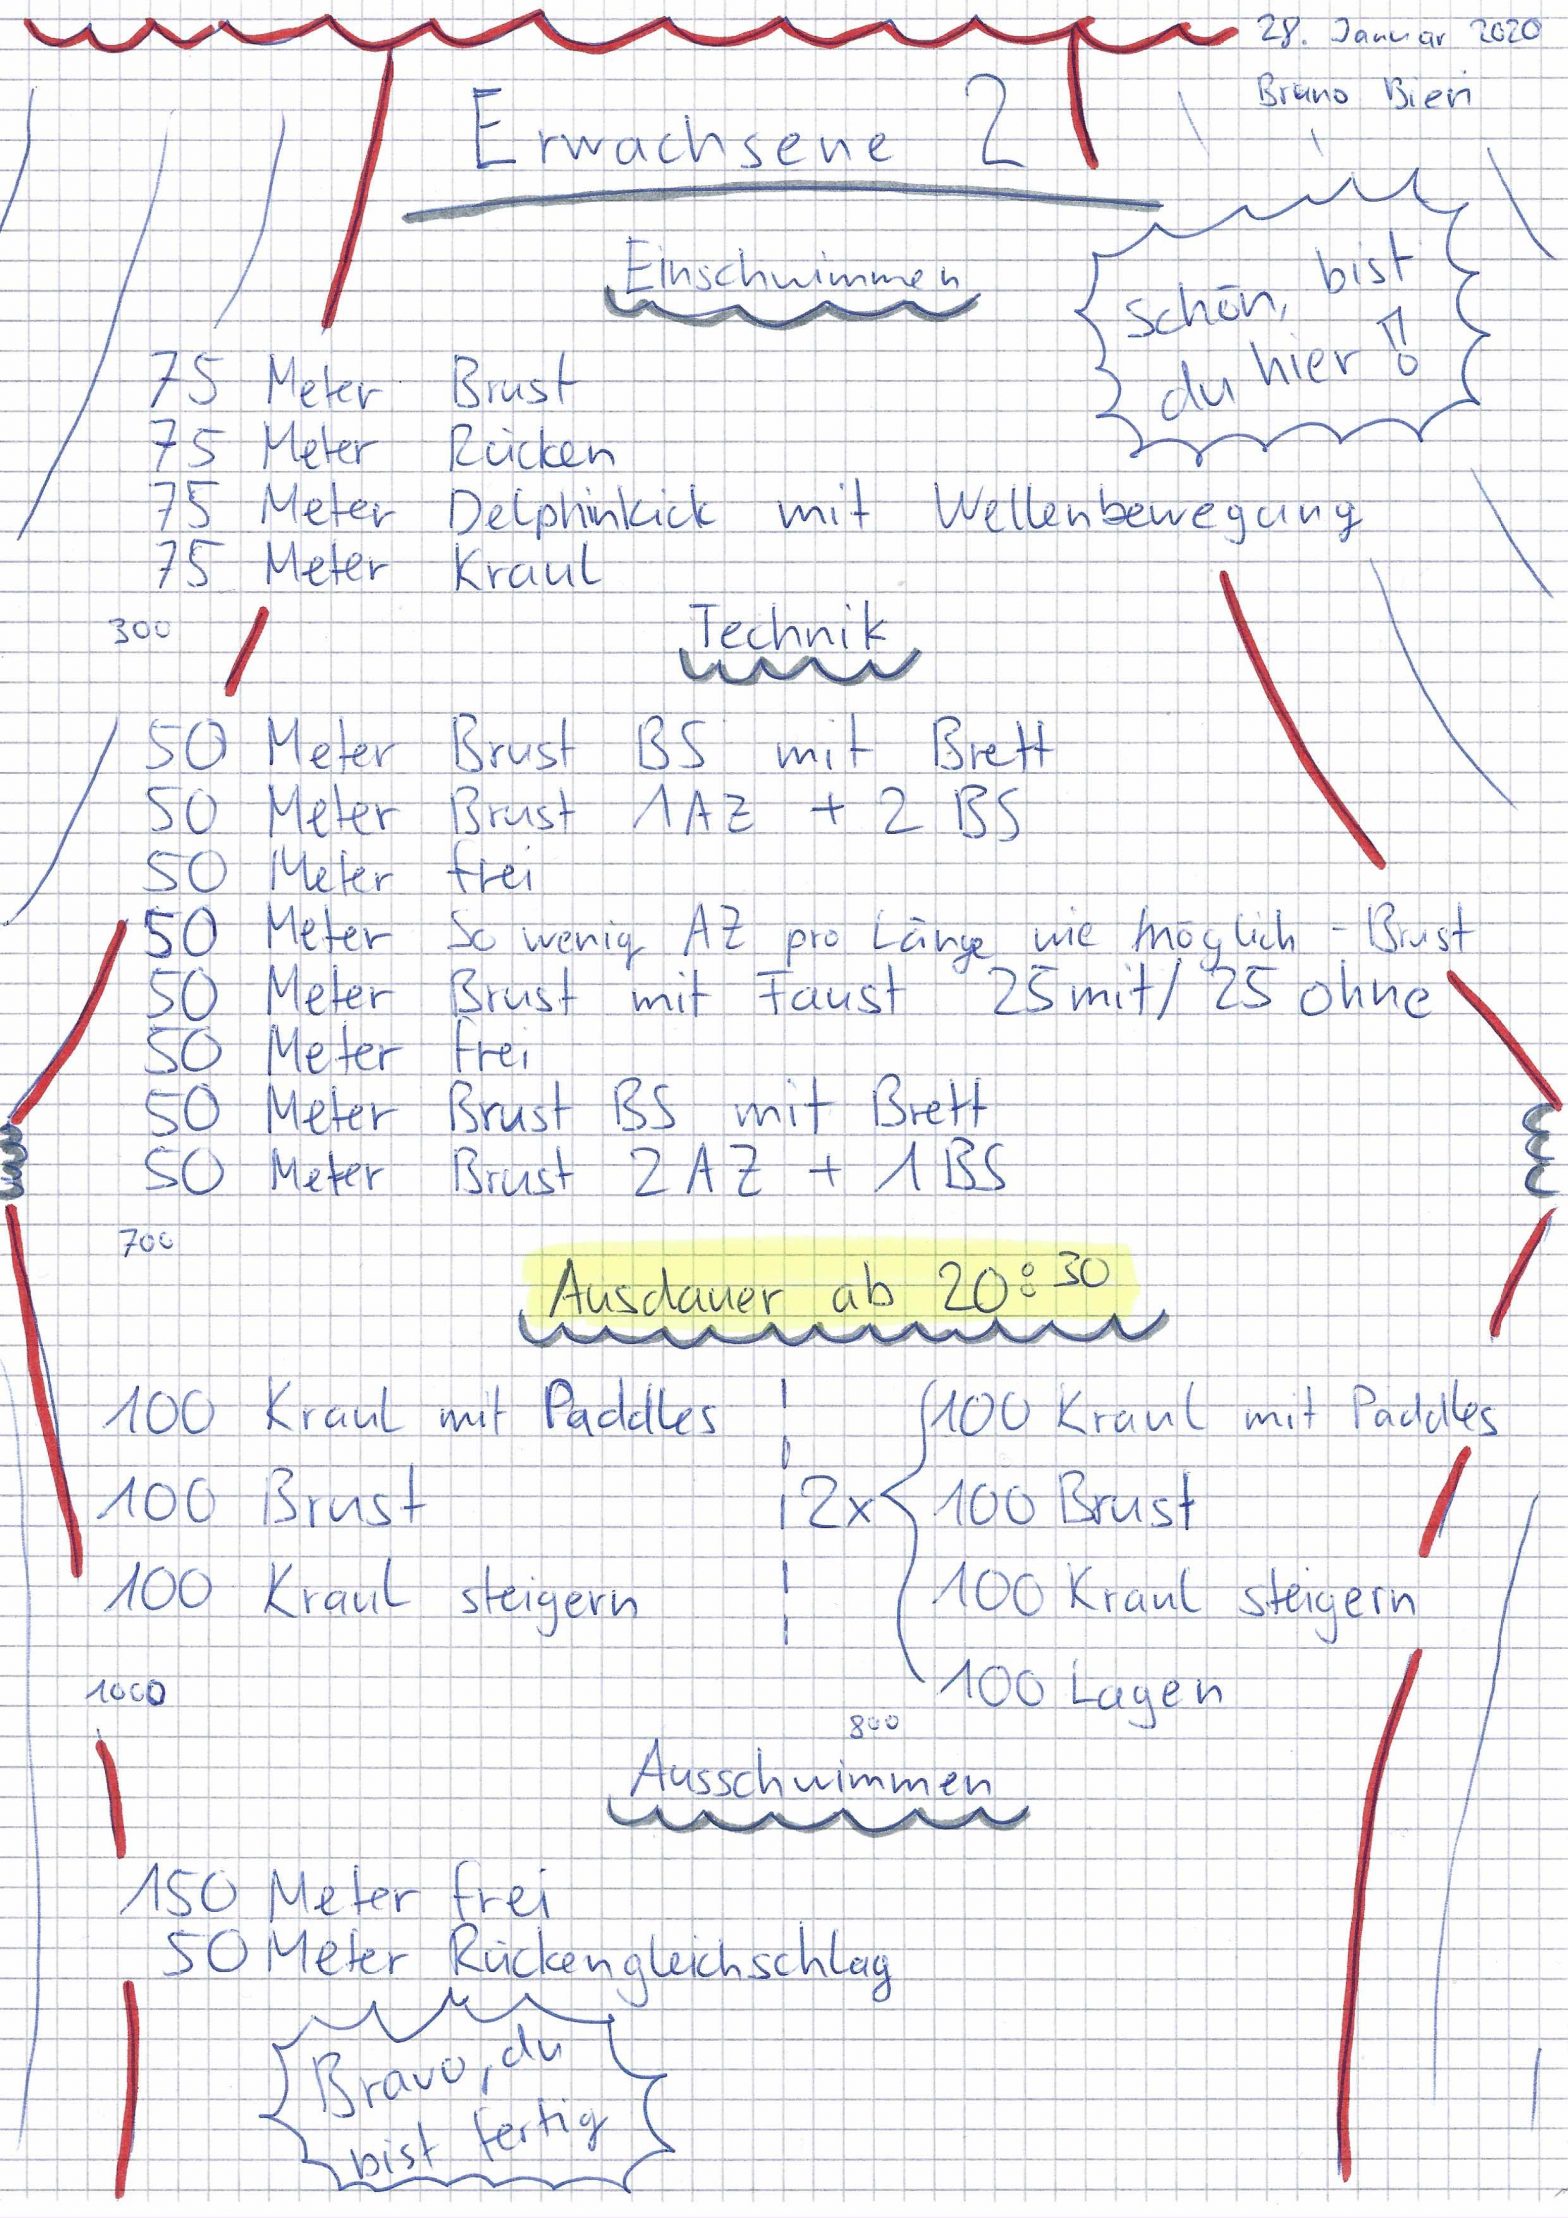 28. Januar 2020
Bruno Bieri
Erwachsene 2
Einschwimmen
schön, bist
du hier!
75 Meter Brust
75 Meter Rücken
75 Meter Delphinkick mit Wellenbewegung
75 Meter Kraul
300
Technik
50 Meter Brust BS mit Brett
50 Meter Brust 1 AZ + 2 BS
50 Meter frei
50 Meter So wenig AZ pro Länge wie möglich - Brust
50 Meter Brust mit Faust 25 mit / 25 ohne
50 Meter frei
50 Meter Brust BS mit Brett
50 Meter Brust 2 AZ + 1 BS
700
Ausdauer ab 20:30
100 Kraul mit Paddles
100 Brust
100 Kraul steigern
1000
2x
100 Kraul mit Paddles
100 Brust
100 Kraul steigern
100 Lagen
800
Ausschwimmen
150 Meter frei
50 Meter Rückengleichschlag
Bravo, du
bist fertig